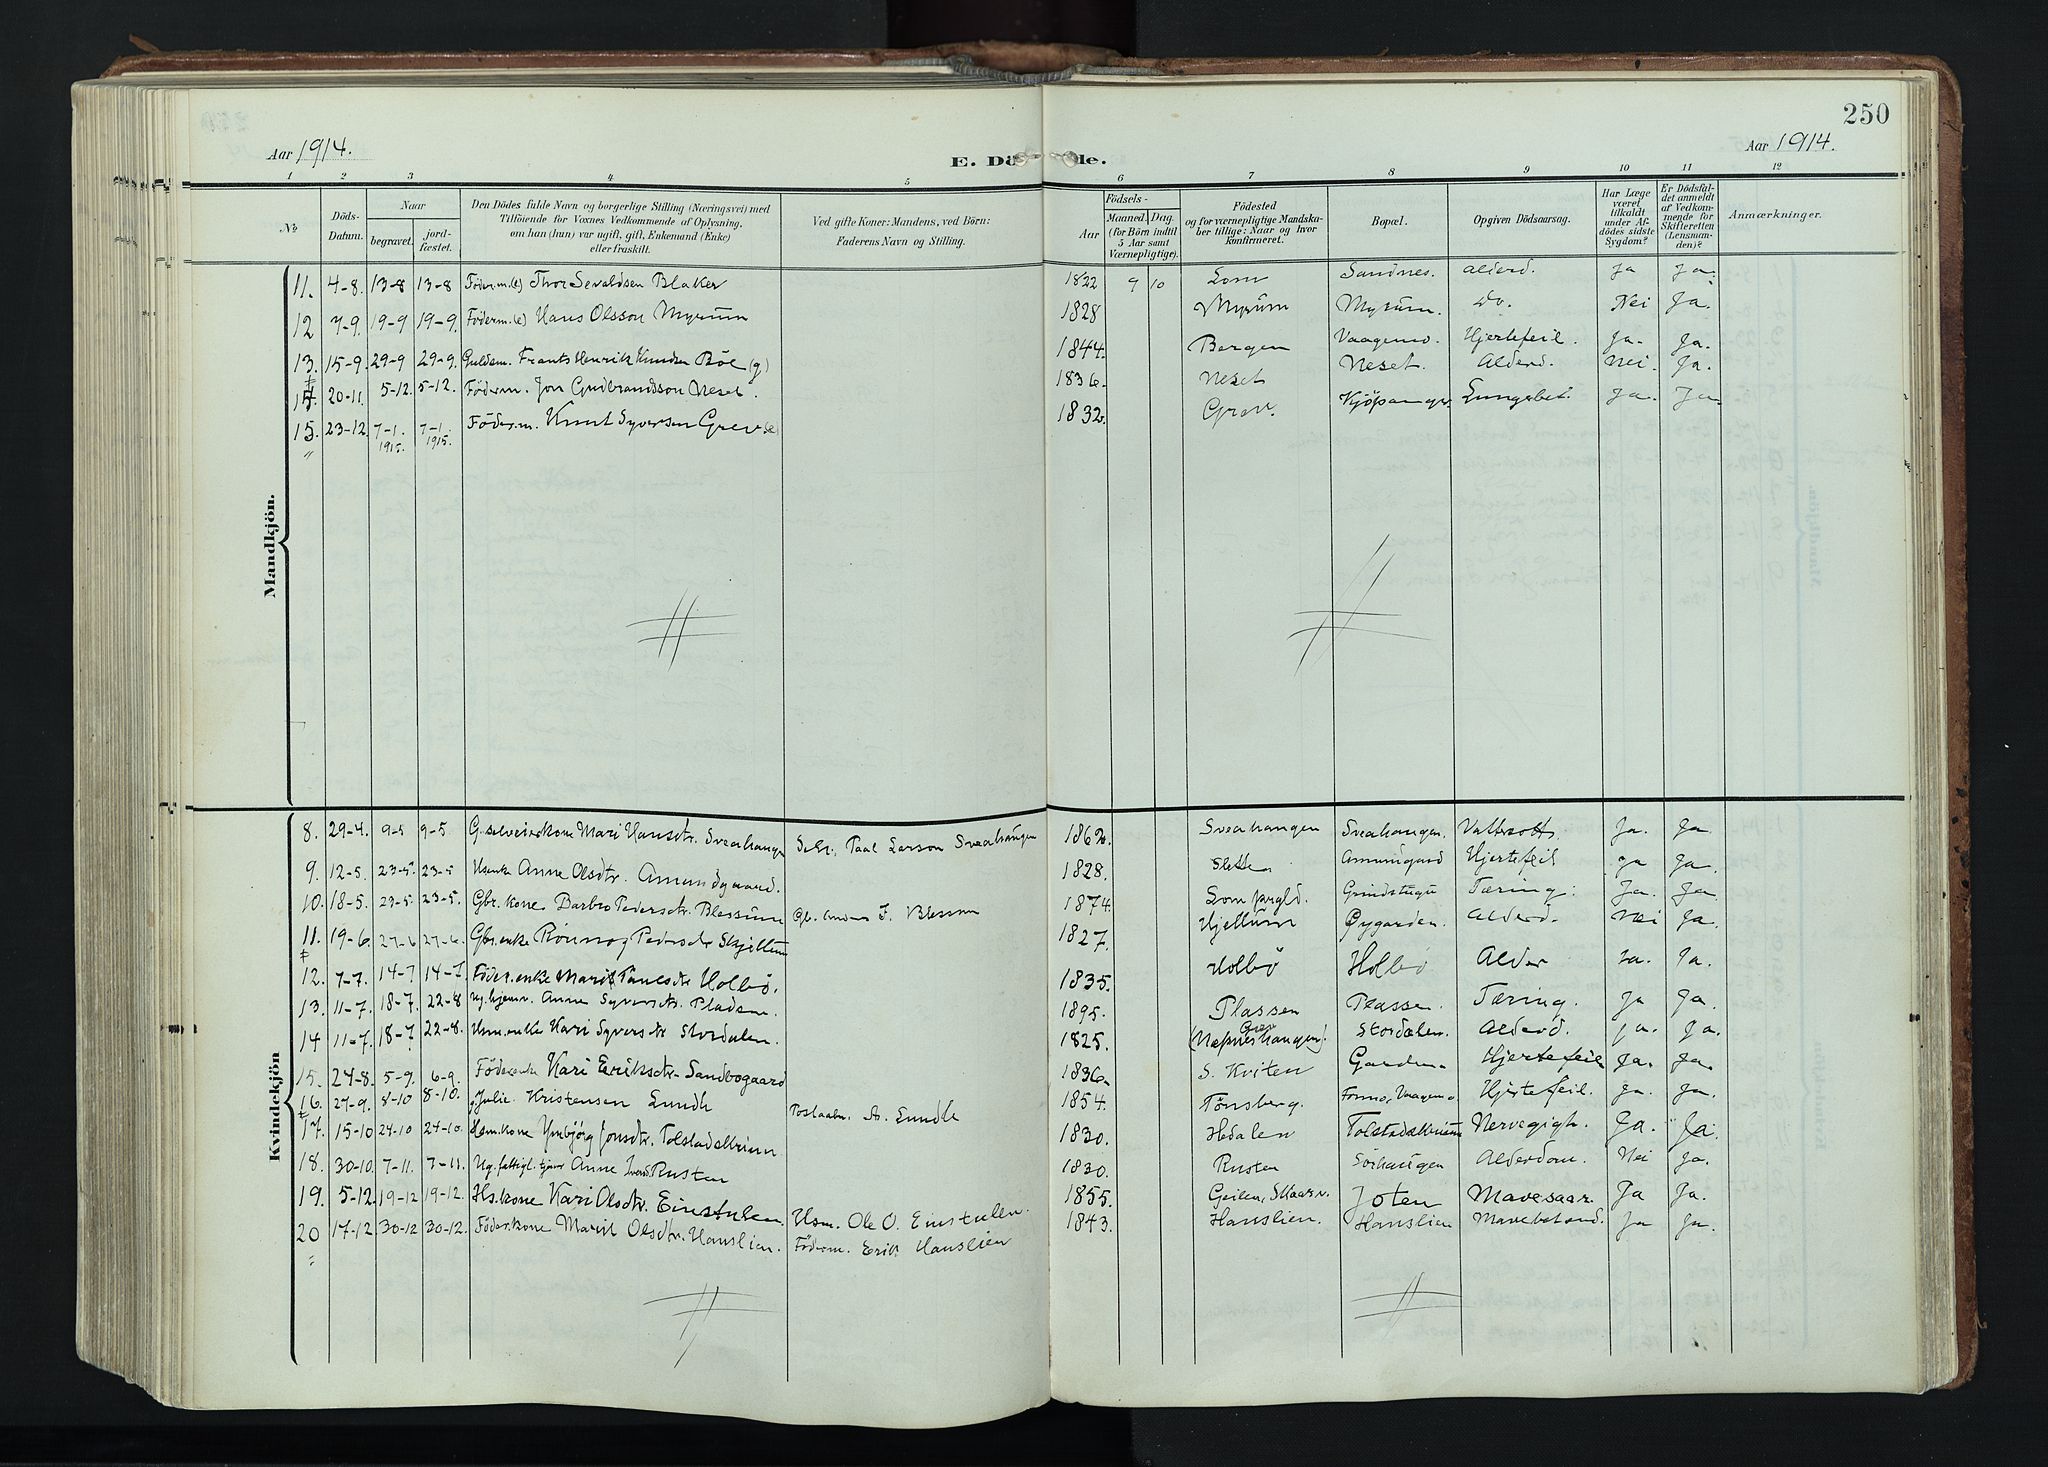 250
Aar 1914.
E. Dö de.
Aar 1914.
1 2 3 4 5 6 7 8 9 10 11 12
№
Döds-Datum.
Naar
begravet.
jord-fæstet.
Den Dödes fulde Navn og borgerlige Stilling (Næringsvei) med
Tilföiende for Voxnes Vedkommende af Oplysning,
om han (hun) var ugift, gift, Enkemand (Enke)
eller fraskilt.
Ved gifte Koner: Mandens, ved Börn:
Faderens Navn og Stilling.
Födsels-
Aar
Maaned. Dag.
(for Börn indtil
5 Aar samt
Værnepligtige).
Födested
og for værnepligtige Mandska-
ber tillige: Naar og hvor
konfirmeret.
Bopæl.
Opgiven Dödsaarsag.
Har Læge
været
tilkaldt
under Af-
dödes sidste
Sygdom?
Er Dödsfal-
det anmeldt
af Vedkom-
mende for
Skifteretten
(Lensman-
den)?
Anmærkninger.
Mandkjön.
11. 4-8. 13-8 13-8 Föderm.(e) Thor Sevaldsen Blaker 1822 9 10 Lom Sandnes. Alderd. Ja Ja.
12 7-9. 19-9 19-9. Föderm.(e) Hans Olsson Myrum 1828 Myrum Myrum. Do. Nei Ja.
13. 15-9. 29-9 29-9. Guldsm. Frants Henrik Knudsen Böe (g) 1844. Bergen Vaagemo. Hjertefeil. Ja. Ja.
20-11. 5-12. 5-12. Föderm. Jon Gudbrandsson Neset. 1836. Neset Neset. Alderd. Nei. Ja.
15. 23-12. 7-1. 1915. 7-1. 1915. Föderm. Knut Syversen Grev (e) 1832. Grev. Kjöpanger. Lungebet. Ja. Ja.
Kvindekjön
8. 29-4. 9-5 9-5 G. selveierkone Mari Hansdtr. Sveahaugen Selv. Paal Larson Sveahaugen 1862. Sveahaugen Sveahaugen. Vattersott. Ja. Ja.
9. 12-5. 23-5. 23-5 Anne Olsdtr. Amundgaard. 1828. Amundgaard Hjertefeil Ja Ja.
10. 18-5. 23-5. 23-5. Gbr. kone Barbro Pedersdtr. Blessum Gb. F. Blessom 1874. Lom prgld. Grindstugu Tæring. Ja. Ja
11. 19-6. 27-6 27-6. Gbr. enke Rönnog Pedersdtr Skjellum 1827. Hjellum Öygarden. Alderd. Nei Ja.
12. 7-7. 14-7 14-7. Föder.enke Marit Holbö. 1835. Holbö Holbö Alder Ja. Ja.
13. 11-7. 18-7. 22-8 Ug. hjemv. Anne Syversdtr. Pladsen. 1895. Plassen Plassen. Tæring. Ja Ja.
14 11-7. 18-7 22-8. Hsm. enke Kari Syversdtr Stordalen. 1825. Stordalen. Alderd. ja. Ja.
15. 24-8. 5-9. 6-9. Föderenke Kari Eriksdtr. Sandbogaard 1836. S. Kviten Garden. Hjertefeil Ja. Ja.
16. 27-9. 8-10 8-10. g. Julie Kristensen Lundh Postaabn. A. Lundh 1854. Tönsberg. Formo, Vaagemo Hjertefeil. Ja. Ja.
17. 15-10 24-10 24-10. Hsm.kone Ymbjörg Jonsdtr. Tolstadekvium. 1830. Hedalen Nervegigt. Ja. Ja.
18. 30-10. 7-11. 7-11. Ug. fattigl. tjener Anne Iversd. Rusten 1830. Rusten Sörhaugen Alderdom. Nei Ja.
19. 5-12. 19-12 19-12. Hs.kone Kari Olsdtr. Einstulen. Hsm. Ole O. Einstulen. 1855. Geilen, Skaarv. Joten Mavesaar. Ja Ja.
20 17-12. 30-12 30-12. Föderkone Marit Olsdtr. Hanslien. Föderm. Erik Hanslien 1843. Hanslien. Hanslien Mavebetænd. Ja Ja.